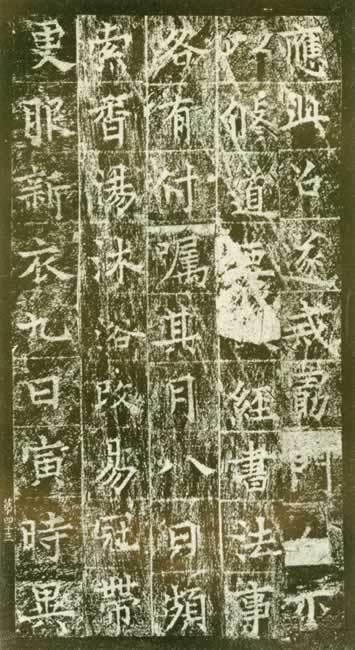 應召戒勗門人示
以後道經書法事
各有付囑其月八日頻
索香湯沐浴改易冠帶
更服新衣九日寅時異